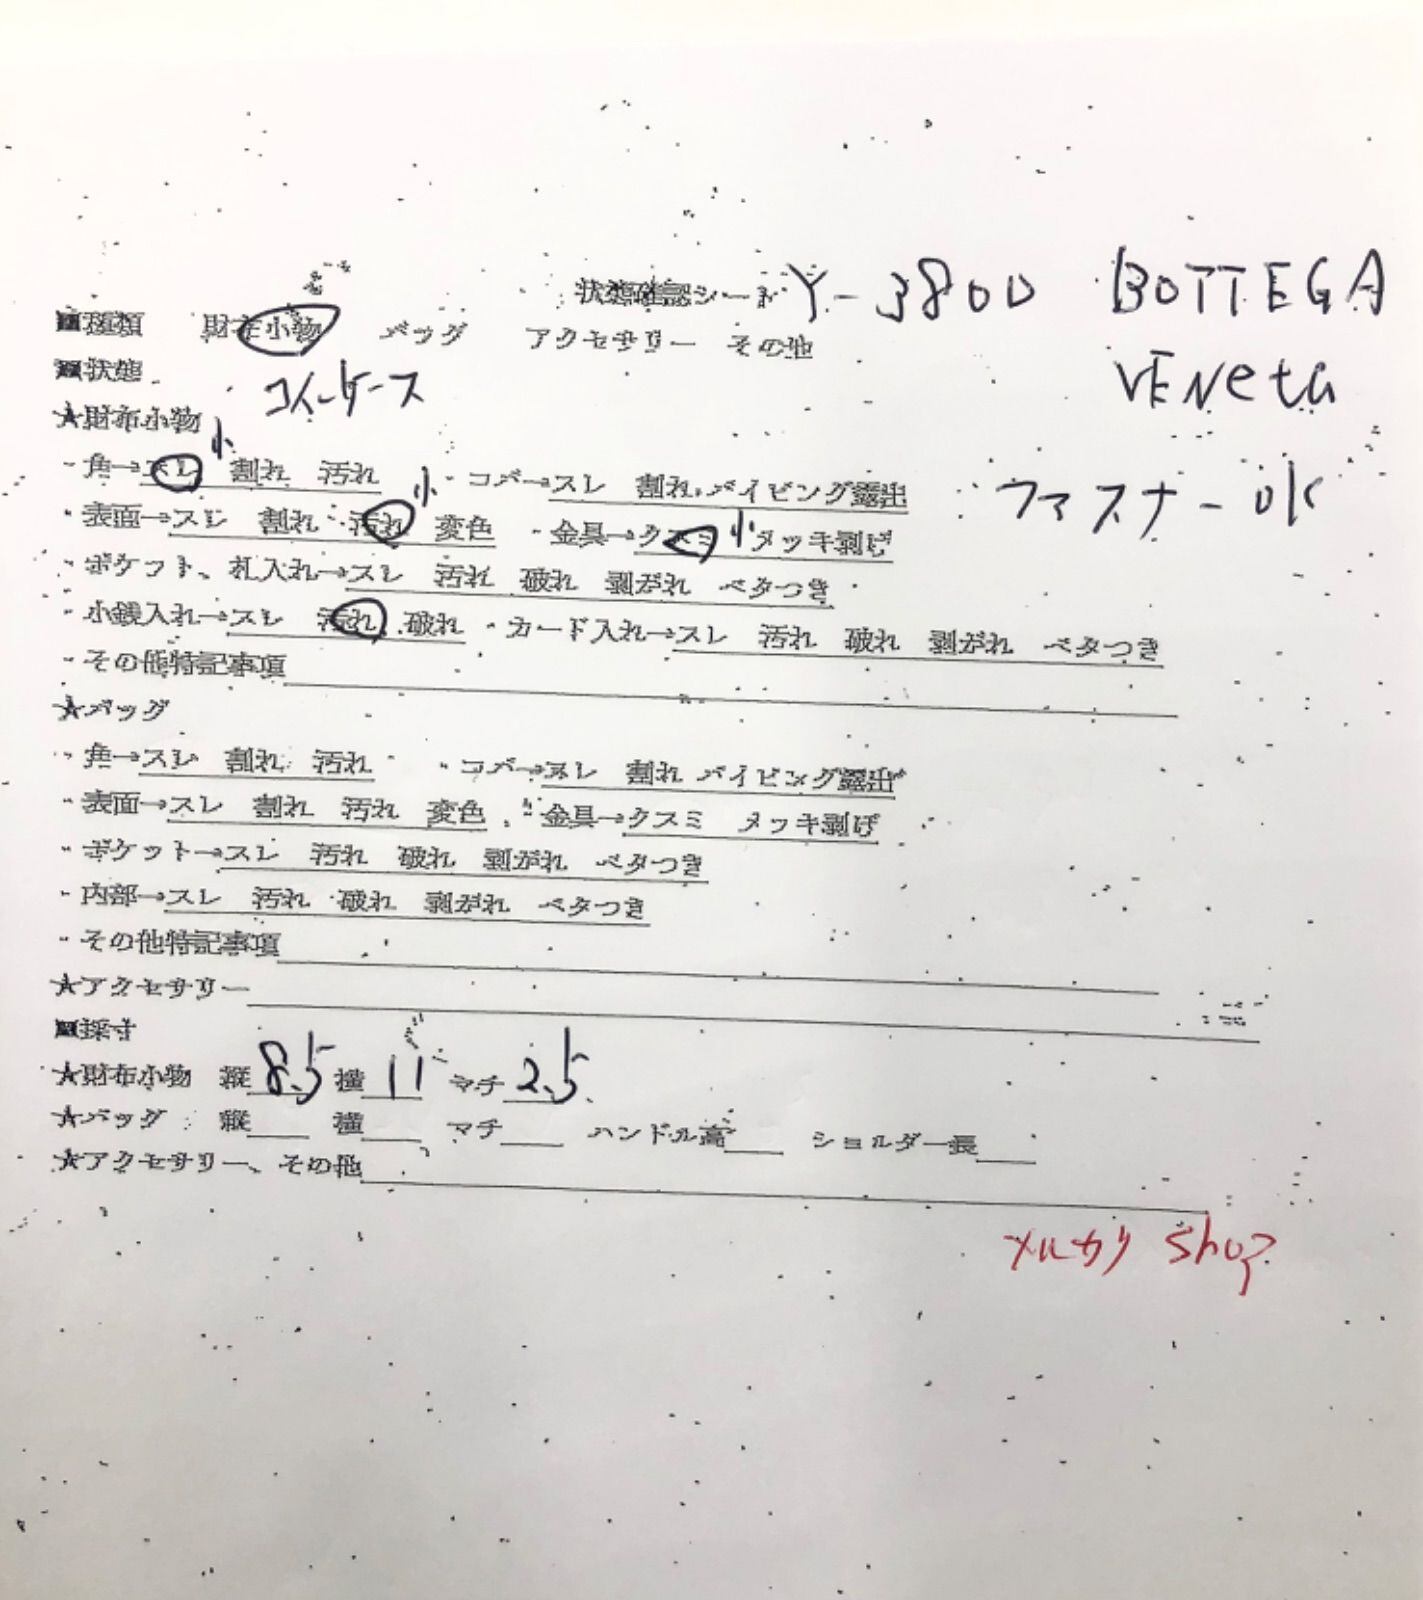 状態確認シート Y-3800 BOTTEGA
VENeta
■種類 財布小物 バッグ アクセサリー その他
■状態 コインケース
★財布小物
・角→スレ 小 割れ 汚れ ・コバ→スレ 割れ パイピング露出
ファスナーOK
・表面→スレ 割れ 汚れ 小 変色 ・金具→クスミ 小 メッキ剥げ
・ポケット、札入れ→スレ 汚れ 破れ 剥がれ ベタつき
・小銭入れ→スレ 汚れ 破れ ・カード入れ→スレ 汚れ 破れ 剥がれ ベタつき
・その他特記事項
★バッグ
・角→スレ 割れ 汚れ ・コバ→スレ 割れ パイピング露出
・表面→スレ 割れ 汚れ 変色 ・金具→クスミ メッキ剥げ
・ポケット→スレ 汚れ 破れ 剥がれ ベタつき
・内部→スレ 汚れ 破れ 剥がれ ベタつき
・その他特記事項
★アクセサリー
■採寸
★財布小物 縦 8.5 横 11 マチ 2.5
★バッグ 縦 横 マチ ハンドル高 ショルダー長
★アクセサリー、その他
メルカリ Shop